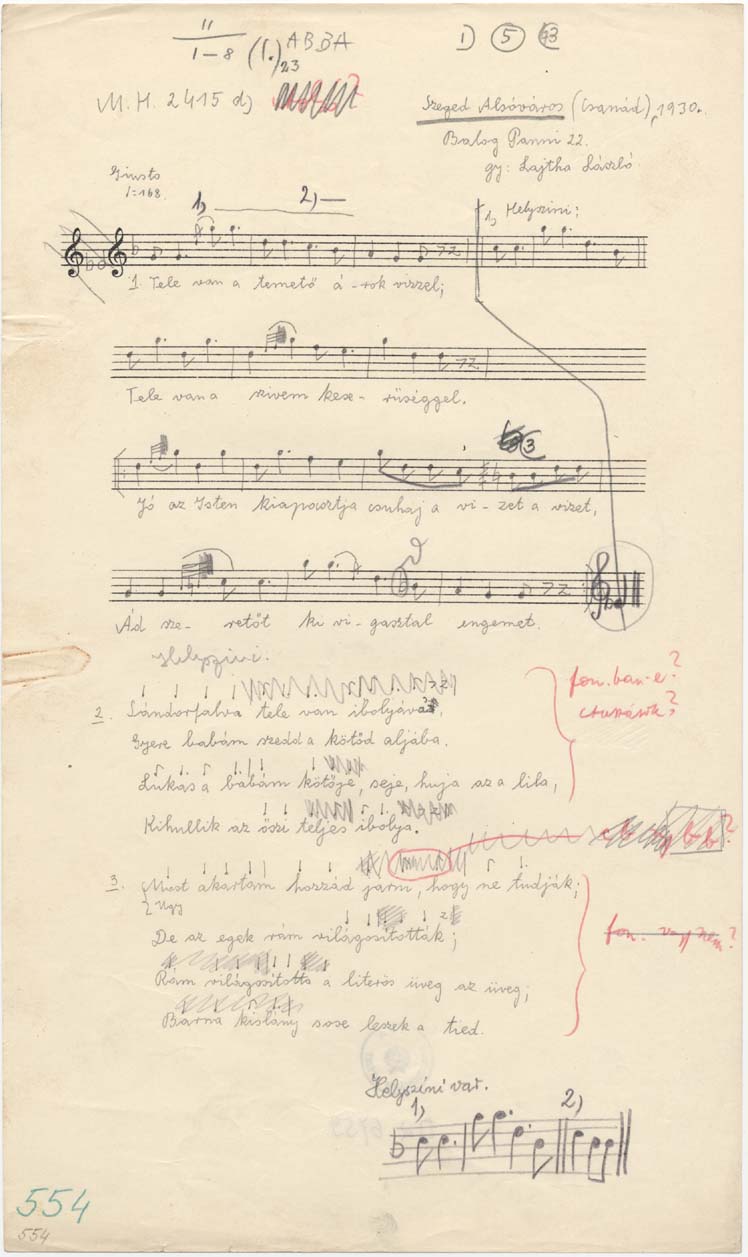 11
1-8 (1.)23 ABBA
1) 5
M. H. 2415 d)
Szeged Alsóváros (Csanád), 1930.
Balog Panni 22.
gy: Lajtha László
Giusto
♩=168
1) 2)
1, Helyszini;
1. Tele van a temető á-rok vizzel;
Tele van a szivem kese-rüséggel.
3
Jó az Isten kiaposztja csuhaj a vi-zet a vizet,
Ád sze-retőt ki vi-gasztal engemet.
Helyszini:
fon.ban-e?
csuszások?
2. Sándorfalva tele van ibolyával,
Gyere babám szedd a kötőd aljába.
Lukas a babám kötője, seje, huja az a lila,
Kihullik az őszi teljes ibolya.
3. Most akartam hozzád járni, hogy ne tudják;
Ugy
De az egek rám világosították;
fon. vagy nem?
Rám világosított a literes üveg az üveg;
Barna kislány sose leszek a tied.
Helyszíni var.
1) 2)
554
554